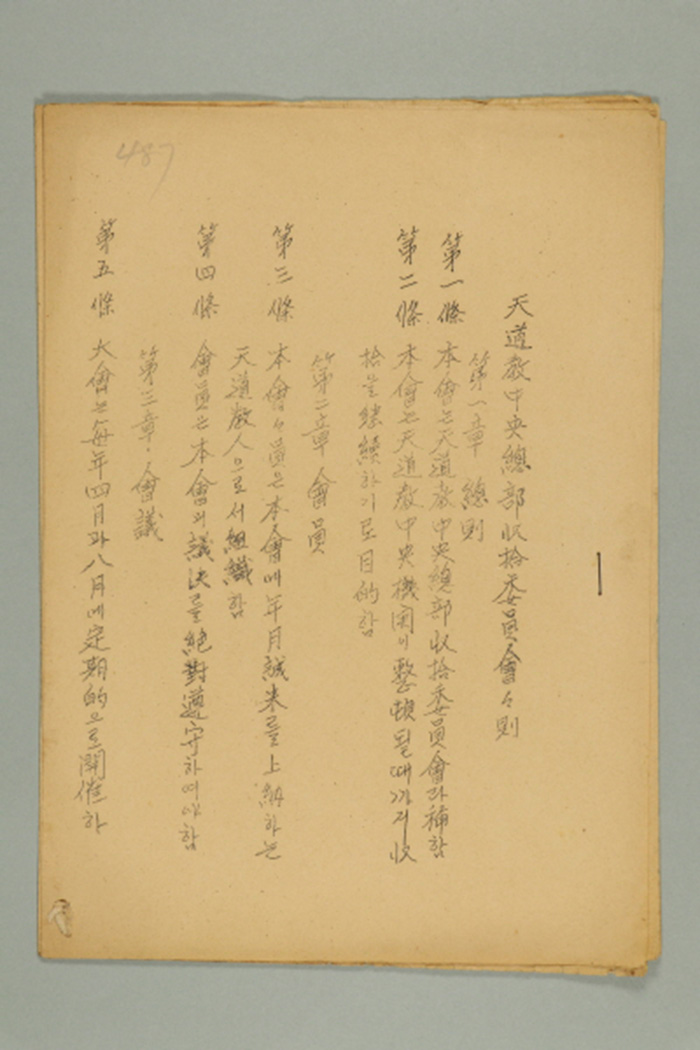 天道敎中央總部收拾委員會々則
第一章 總則
第一條 本會는天道敎中央總部收拾委員會라稱함
第二條 本會는天道敎中央機関이整頓될때까지收
拾을継續하기로目的함
第二章 會員
第三條 本會々員은本會에年月誠米를上納하는
天道敎人으로서組織함
第四條 會員은本會의議決를絶對遵守하여야함
第三章 會議
第五條 大會는每年四月과八月에定期的으로開催하
487